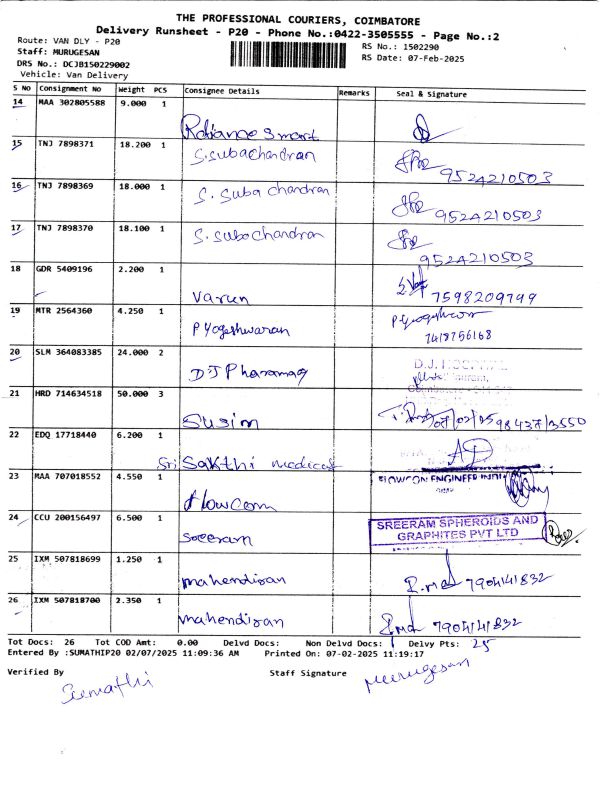 THE PROFESSIONAL COURIERS, COIMBATORE
Delivery Runsheet - P20 - Phone No.:0422-3505555 - Page No.:2
Route: VAN DLY - P20
Staff: MURUGESAN
DRS No.: DCJB150229002
Vehicle: Van Delivery
RS No.: 1502290
RS Date: 07-Feb-2025
S No Consignment No Weight PCS Consignee Details Remarks Seal & Signature
14 MAA 302805588 9.000 1 Reliance Smart
15 TNJ 7898371 18.200 1 S.Subachandran 9524210503
16 TNJ 7898369 18.000 1 S. Suba chandran 9524210503
17 TNJ 7898370 18.100 1 S. Subachandran 9524210503
18 GDR 5409196 2.200 1 Varun 7598209799
19 MTR 2564360 4.250 1 P Yogeshwaran P Yogeshwaran 7418756168
20 SLM 364083385 24.000 2 D.J Pharamacy D.J. HOSPITAL
21 HRD 714634518 50.000 3 Susim
22 EDQ 17718440 6.200 1 Sri Sakthi medical
23 MAA 707018552 4.550 1 Flowcom FLOWCON ENGINEER INDIA
24 CCU 200156497 6.500 1 Sreeram SREERAM SPHEROIDS AND
GRAPHITES PVT LTD
25 IXM 507818699 1.250 1 mahendiran 7904141832
26 IXM 507818700 2.350 1 mahendiran 7904141832
Tot Docs: 26 Tot COD Amt: 0.00 Delvd Docs: Non Delvd Docs: 1 Delvy Pts: 25
Entered By :SUMATHIP20 02/07/2025 11:09:36 AM Printed On: 07-02-2025 11:19:17
Verified By Staff Signature
Sumathi Murugesan